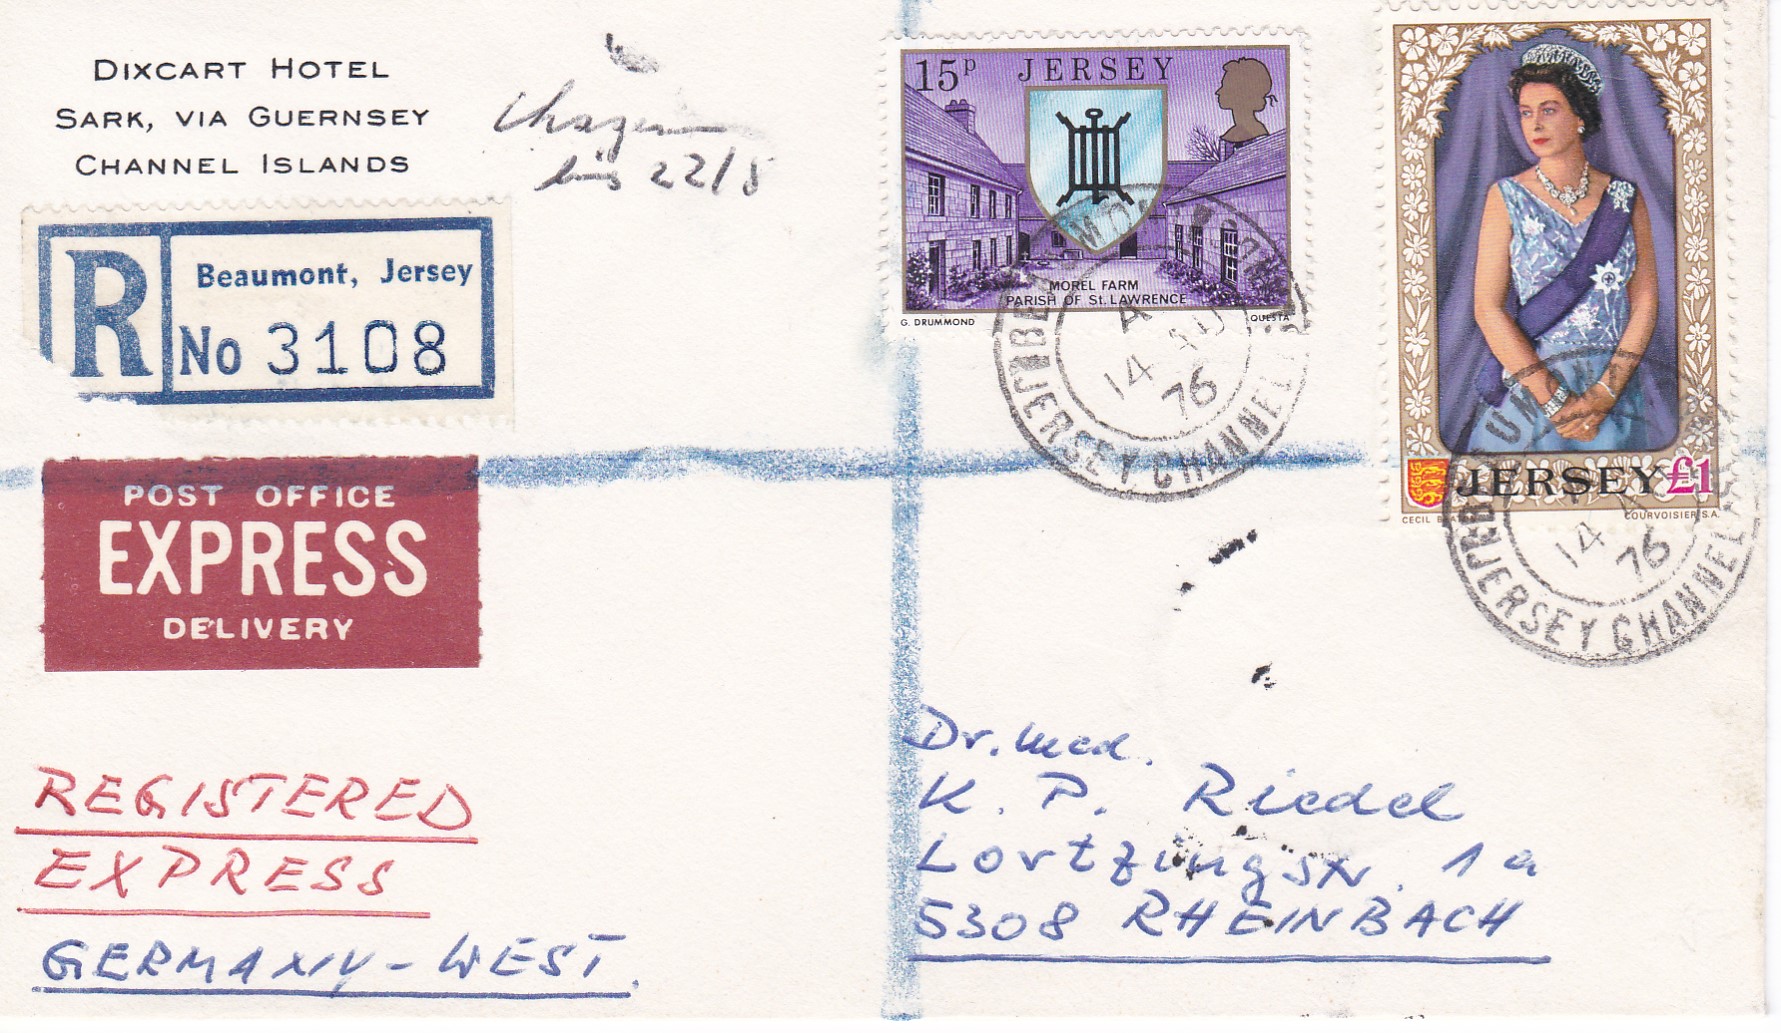 DIXCART HOTEL
SARK, VIA GUERNSEY
CHANNEL ISLANDS
bis 22/8
R
Beaumont, Jersey
No 3108
15P JERSEY
MOREL FARM
PARISH OF St. LAWRENCE
G. DRUMMOND QUESTA
BEAUMONT
A
14 AU
76
JERSEY CHANNEL
JERSEY £1
CECIL COURVOISIER S.A.
UMONT
14
76
JERSEY CHANNEL
POST OFFICE
EXPRESS
DELIVERY
REGISTERED
EXPRESS
GERMANY-WEST.
Dr. med.
K. P. Riedel
Lortzingstr. 1a
5308 RHEINBACH